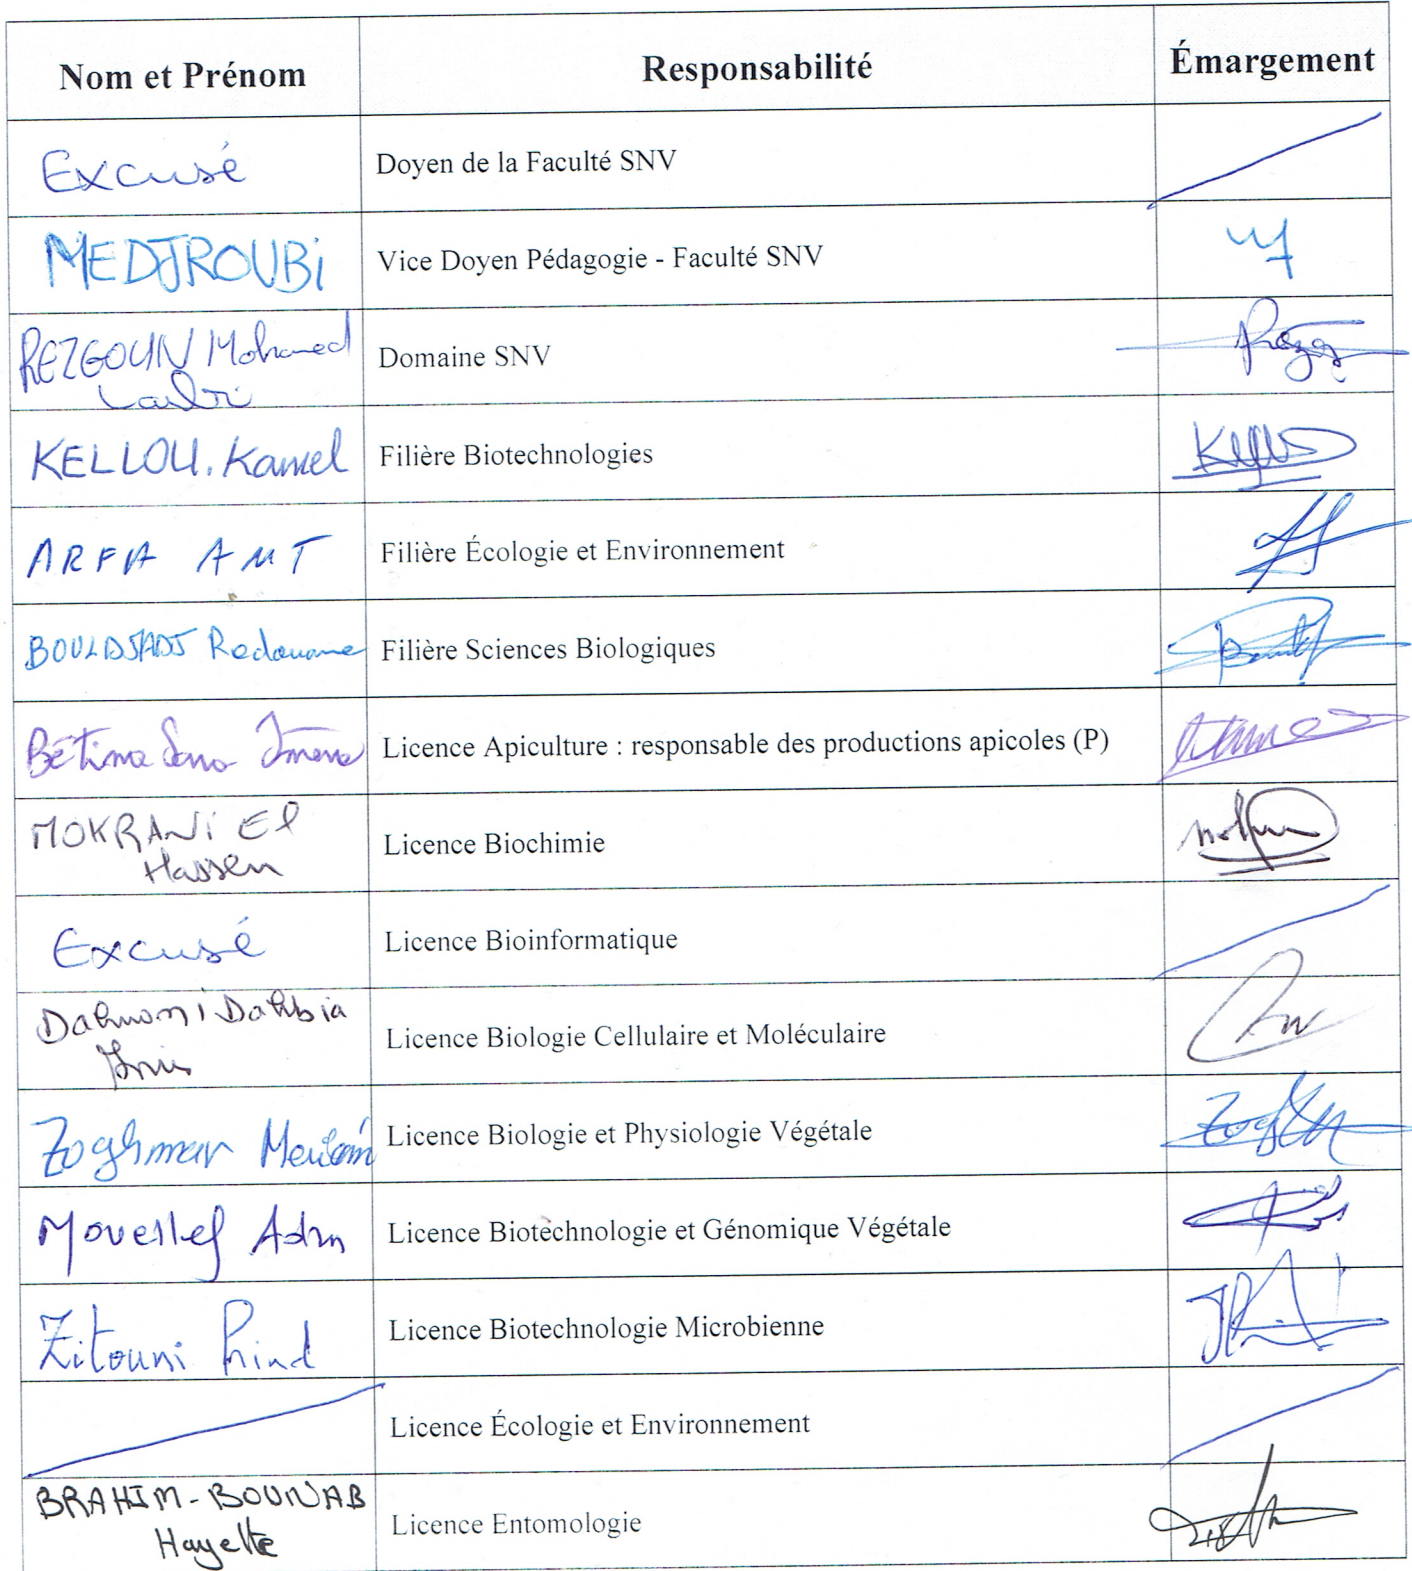 Nom et Prénom Responsabilité Émargement
Excusé Doyen de la Faculté SNV
MEDJROUBi Vice Doyen Pédagogie - Faculté SNV
REZGOUN Mohamed
Larbi
Domaine SNV
KELLOU. Kamel Filière Biotechnologies
ARFA AMT Filière Écologie et Environnement
BOULDJADJ Redouane Filière Sciences Biologiques
Bétina Imene Licence Apiculture : responsable des productions apicoles (P)
MOKRANi El
Hassen
Licence Biochimie
Excusé Licence Bioinformatique
Dahmani Dahbia
Licence Biologie Cellulaire et Moléculaire
Zoghmar Licence Biologie et Physiologie Végétale
Licence Biotechnologie et Génomique Végétale
Zitouni Licence Biotechnologie Microbienne
Licence Écologie et Environnement
BRAHIM-BOUNAB
Hayette
Licence Entomologie